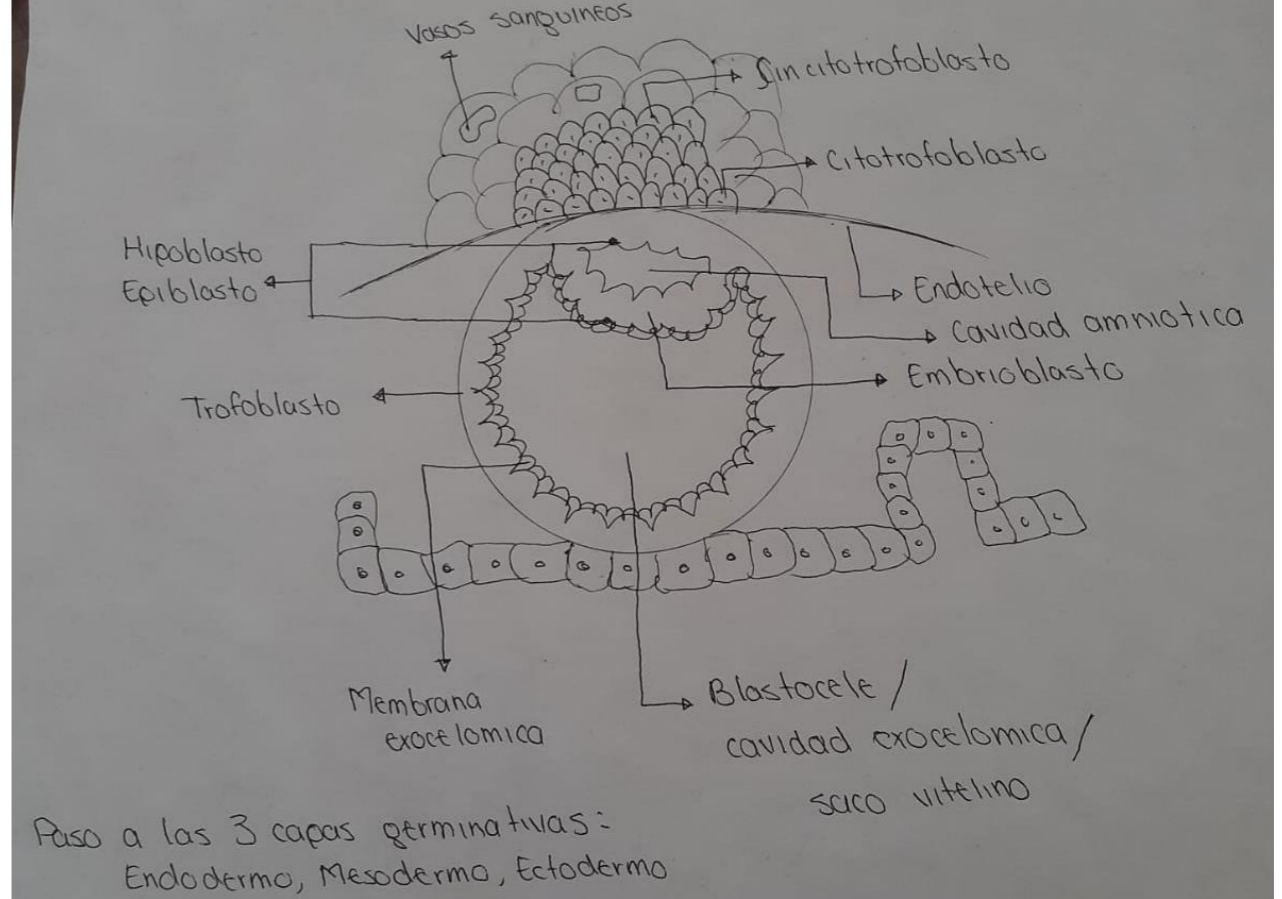 Vasos sanguineos
Sincitotrofoblasto
Citotrofoblasto
Hipoblasto
Epiblasto
Endotelio
Cavidad amniotica
Embrioblasto
Trofoblasto
Membrana
exocelomica
Blastocele /
cavidad exocelomica/
saco vitelino
Paso a las 3 capas germinativas:
Endodermo, Mesodermo, Ectodermo